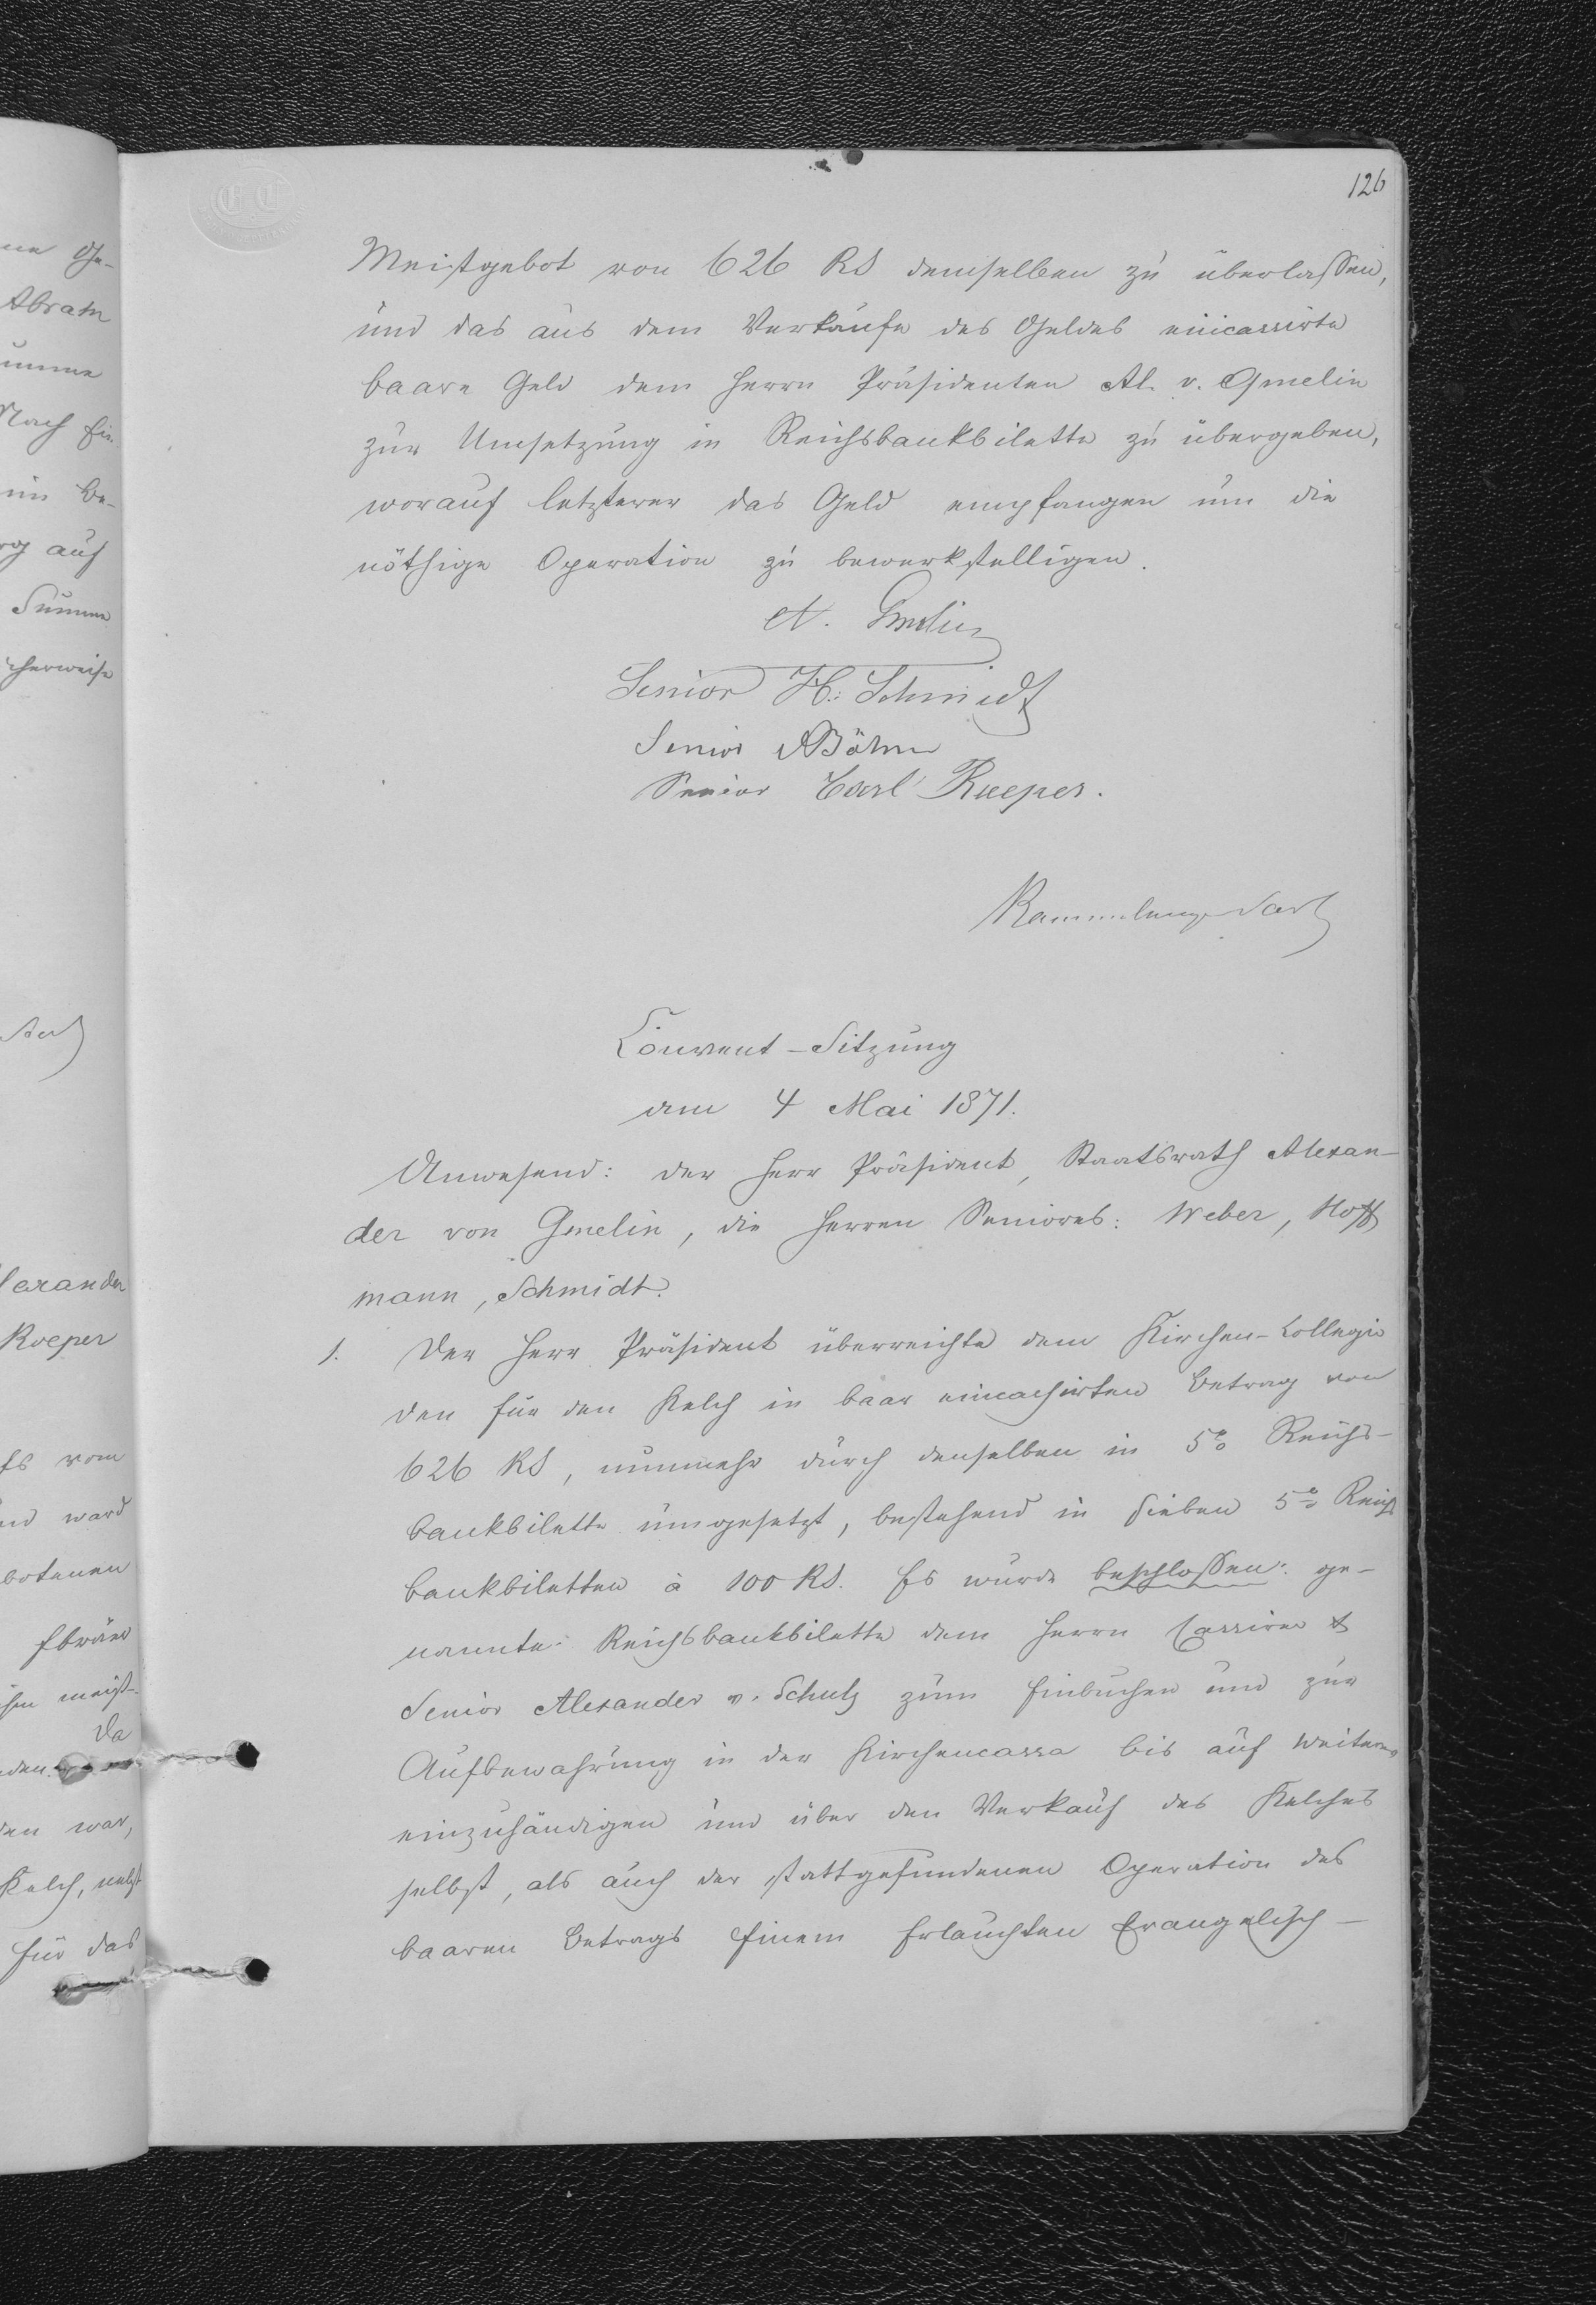 126
Meistgebot von 626 RS demselben zu überlassen,
und das aus dem Verkaufe des Geldes eincassirte
baare Geld dem Herrn Präsidenten Al. v. Gmelin
zur Umsetzung in Reichsbankbilette zu übergeben,
worauf letzterer das Geld empfangen um die
nöthige Operation zu bewerkstelligen.
A. Gmelin
Senior H: Schmidt
Senior ABöhm
Senior Carl Roeper.
Convent-Sitzung
am 4 Mai 1871.
Anwesend: der Herr Präsident, Staatsrath Alexan-
der von Gmelin, die Herren Seniores: Weber, Hoff
mann, Schmidt.
1. Der Herr Präsident überreichte dem Kirchen-Collegio
den für den Kelch in baar eincassirten Betrag von
626 RS, nunmehr durch denselben in 5% Reichs-
bankbilette umgesetzt, bestehend in sieben 5% Reichs
bankbiletten à 100 RS. Es wurde beschlossen: ge-
nannte Reichsbankbilette dem Herrn Cassirer &
Senior Alexander v. Schulz zum Einbuchen und zur
Aufbewahrung in der Kirchencassa bis auf Weiteres
einzuhändigen und über den Verkauf des Kelches
selbst, als auch der stattgefundenen Operation des
baaren Betrags Einem Erlauchten Evangelisch-
ne Ge-
Abram
umme
Nach Ein
im Be-
rg auf
Summe
cherweise
lexander
Roeper
Es vom
und ward
botenen
meist-
Da
den war,
Kelch, nebst
für das